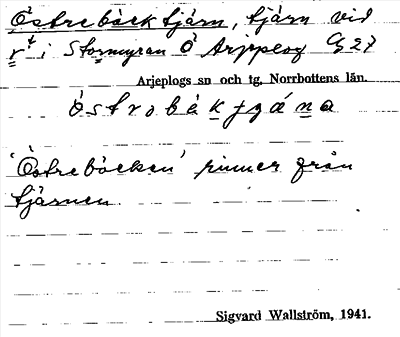 Östrebäcktjärn, tjärn vid
rt i Stormyran Ö Arjeplog G 27
Arjeplogs sn och tg, Norrbottens län.
'Östrebäcken' rinner från
tjärnen.
Sigvard Wallström, 1941.